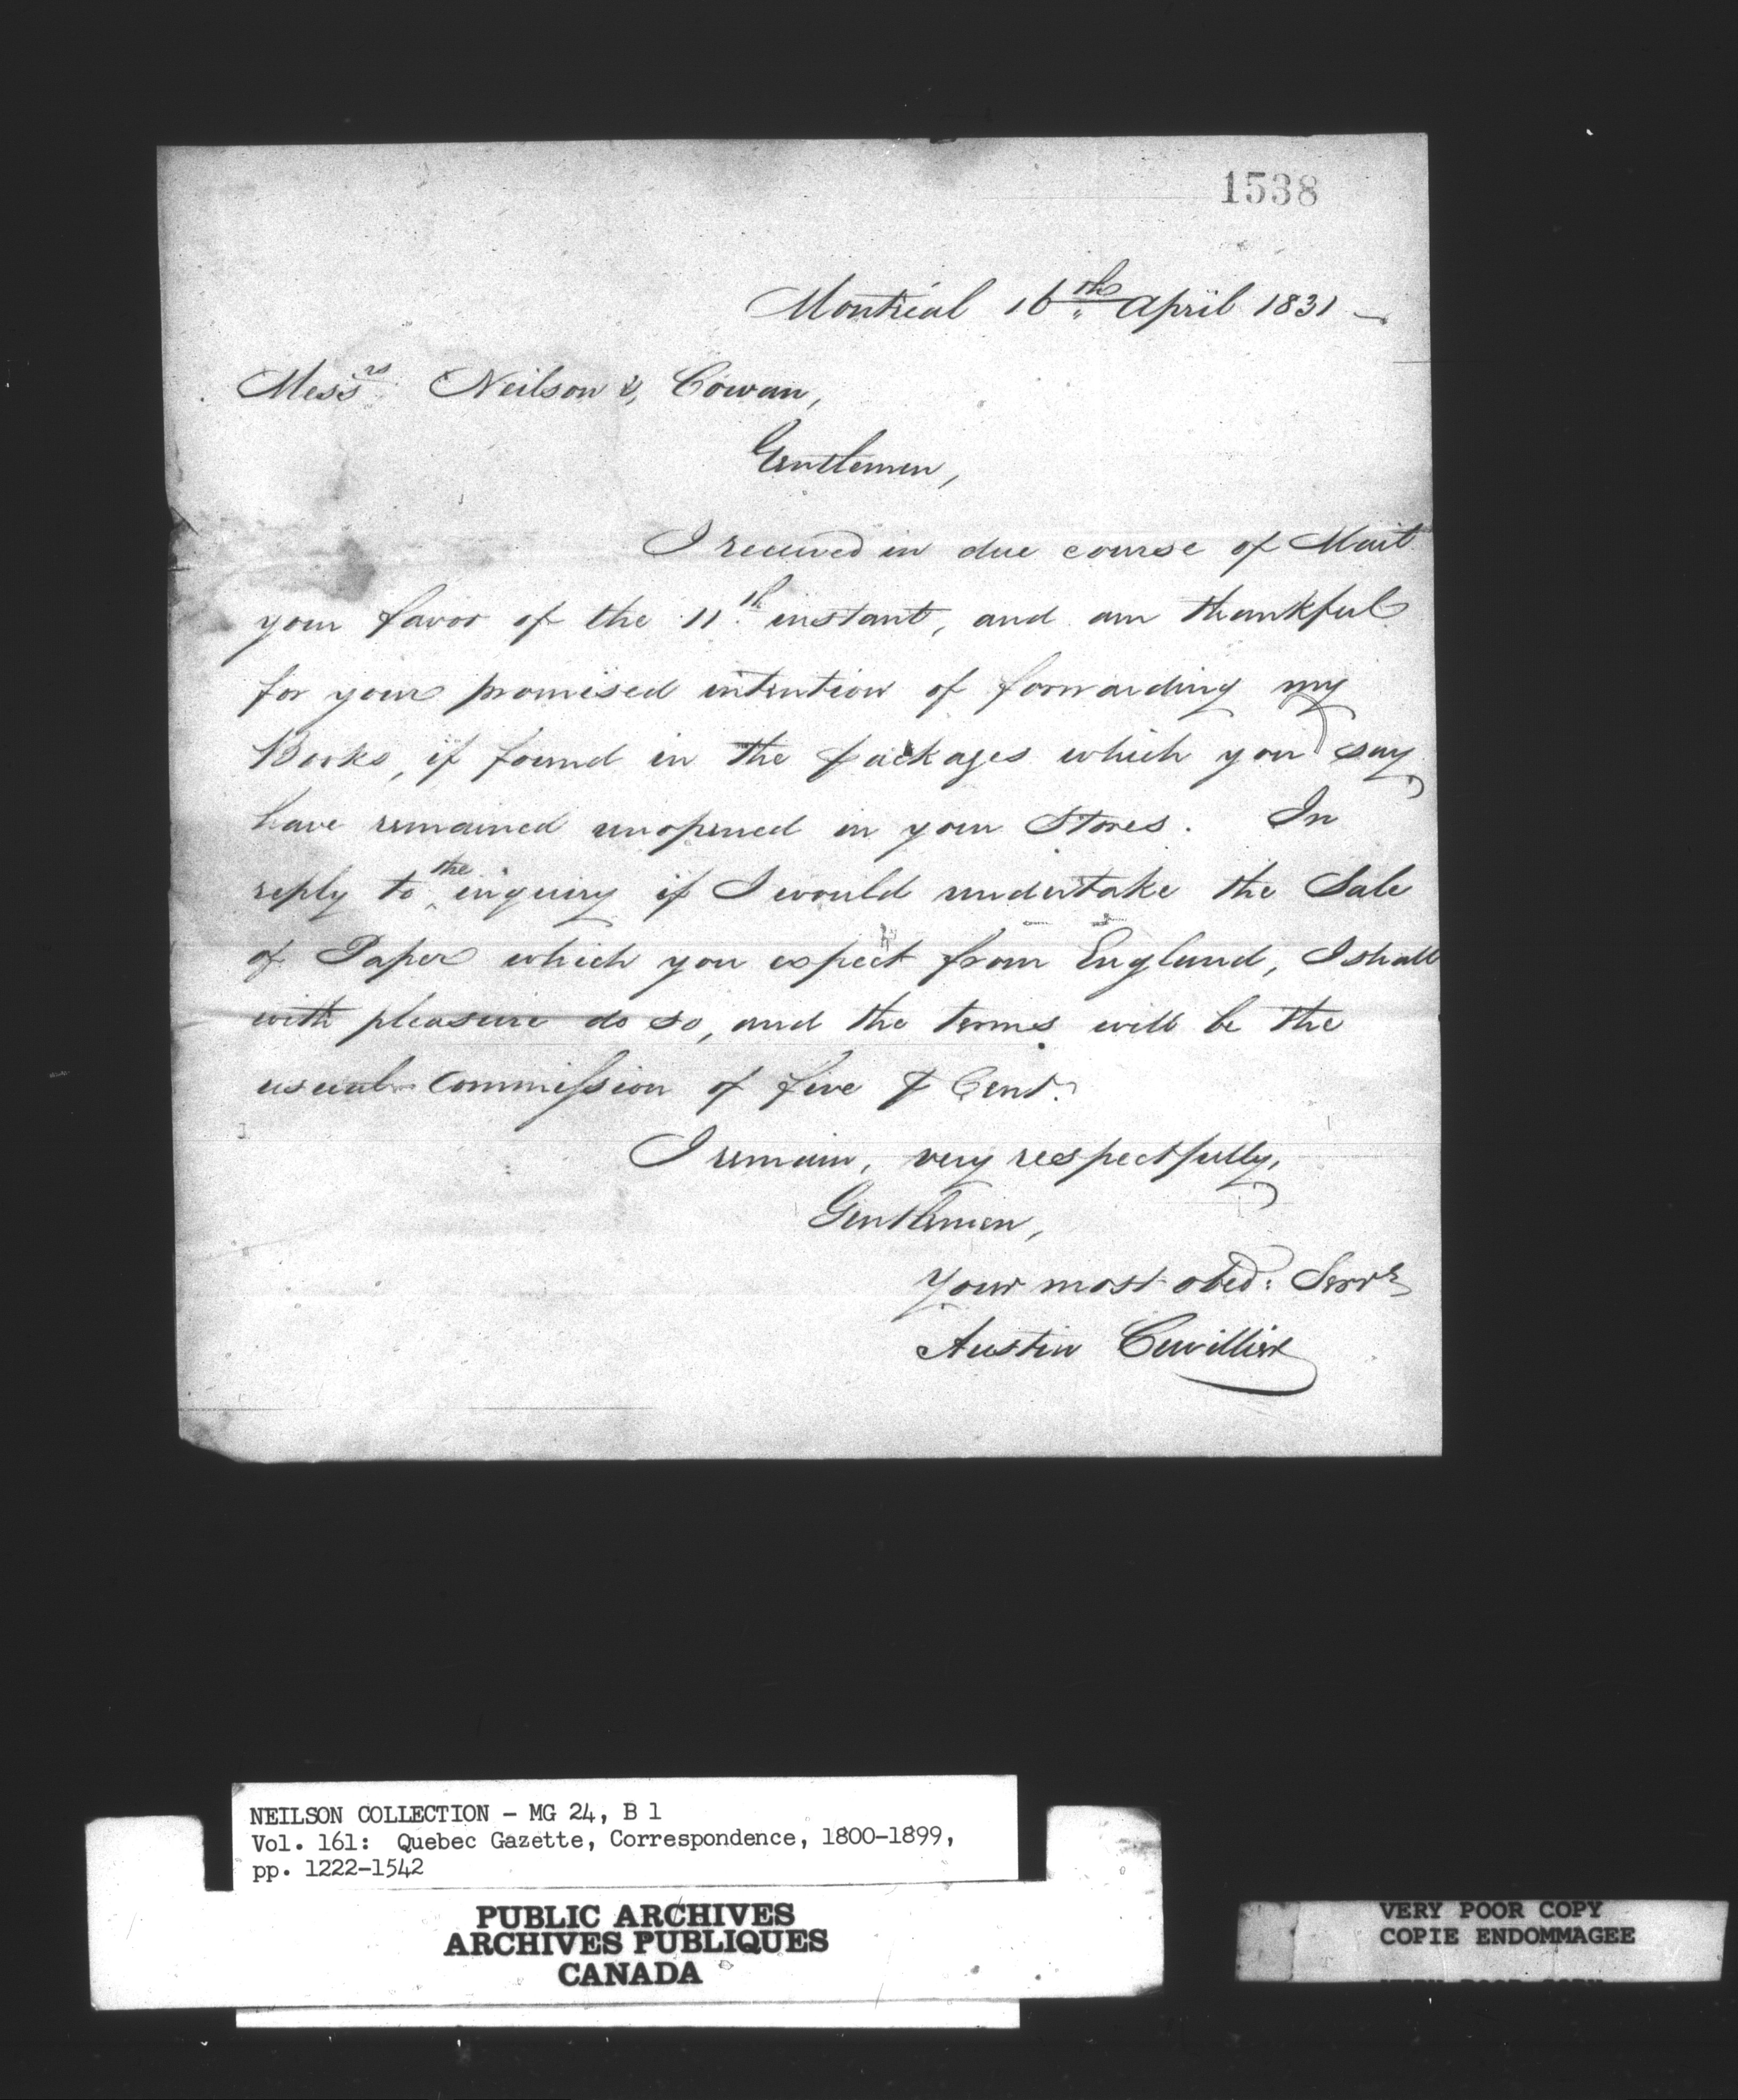 1538
Montreal 16th April 1831
Messrs Neilson & Cowan,
Gentlemen,
I received in due course of Mail
your favor of the 11th instant, and am thankful
for your promised intention of forwarding my
Books, if found in the packages which you say
have remained unopened in your Stores. In
reply to the inquiry if I would undertake the Sale
of Paper which you expect from England, I shall
with pleasure do so, and the terms will be the
usual Commission of five ⅌ Cent.
I remain, very respectfully,
Gentlemen,
Your most obed: Servt
Austin Cuvillier
NEILSON COLLECTION - MG 24, B 1
Vol. 161: Quebec Gazette, Correspondence, 1800-1899,
pp. 1222-1542
PUBLIC ARCHIVES
ARCHIVES PUBLIQUES
CANADA
VERY POOR COPY
COPIE ENDOMMAGEE